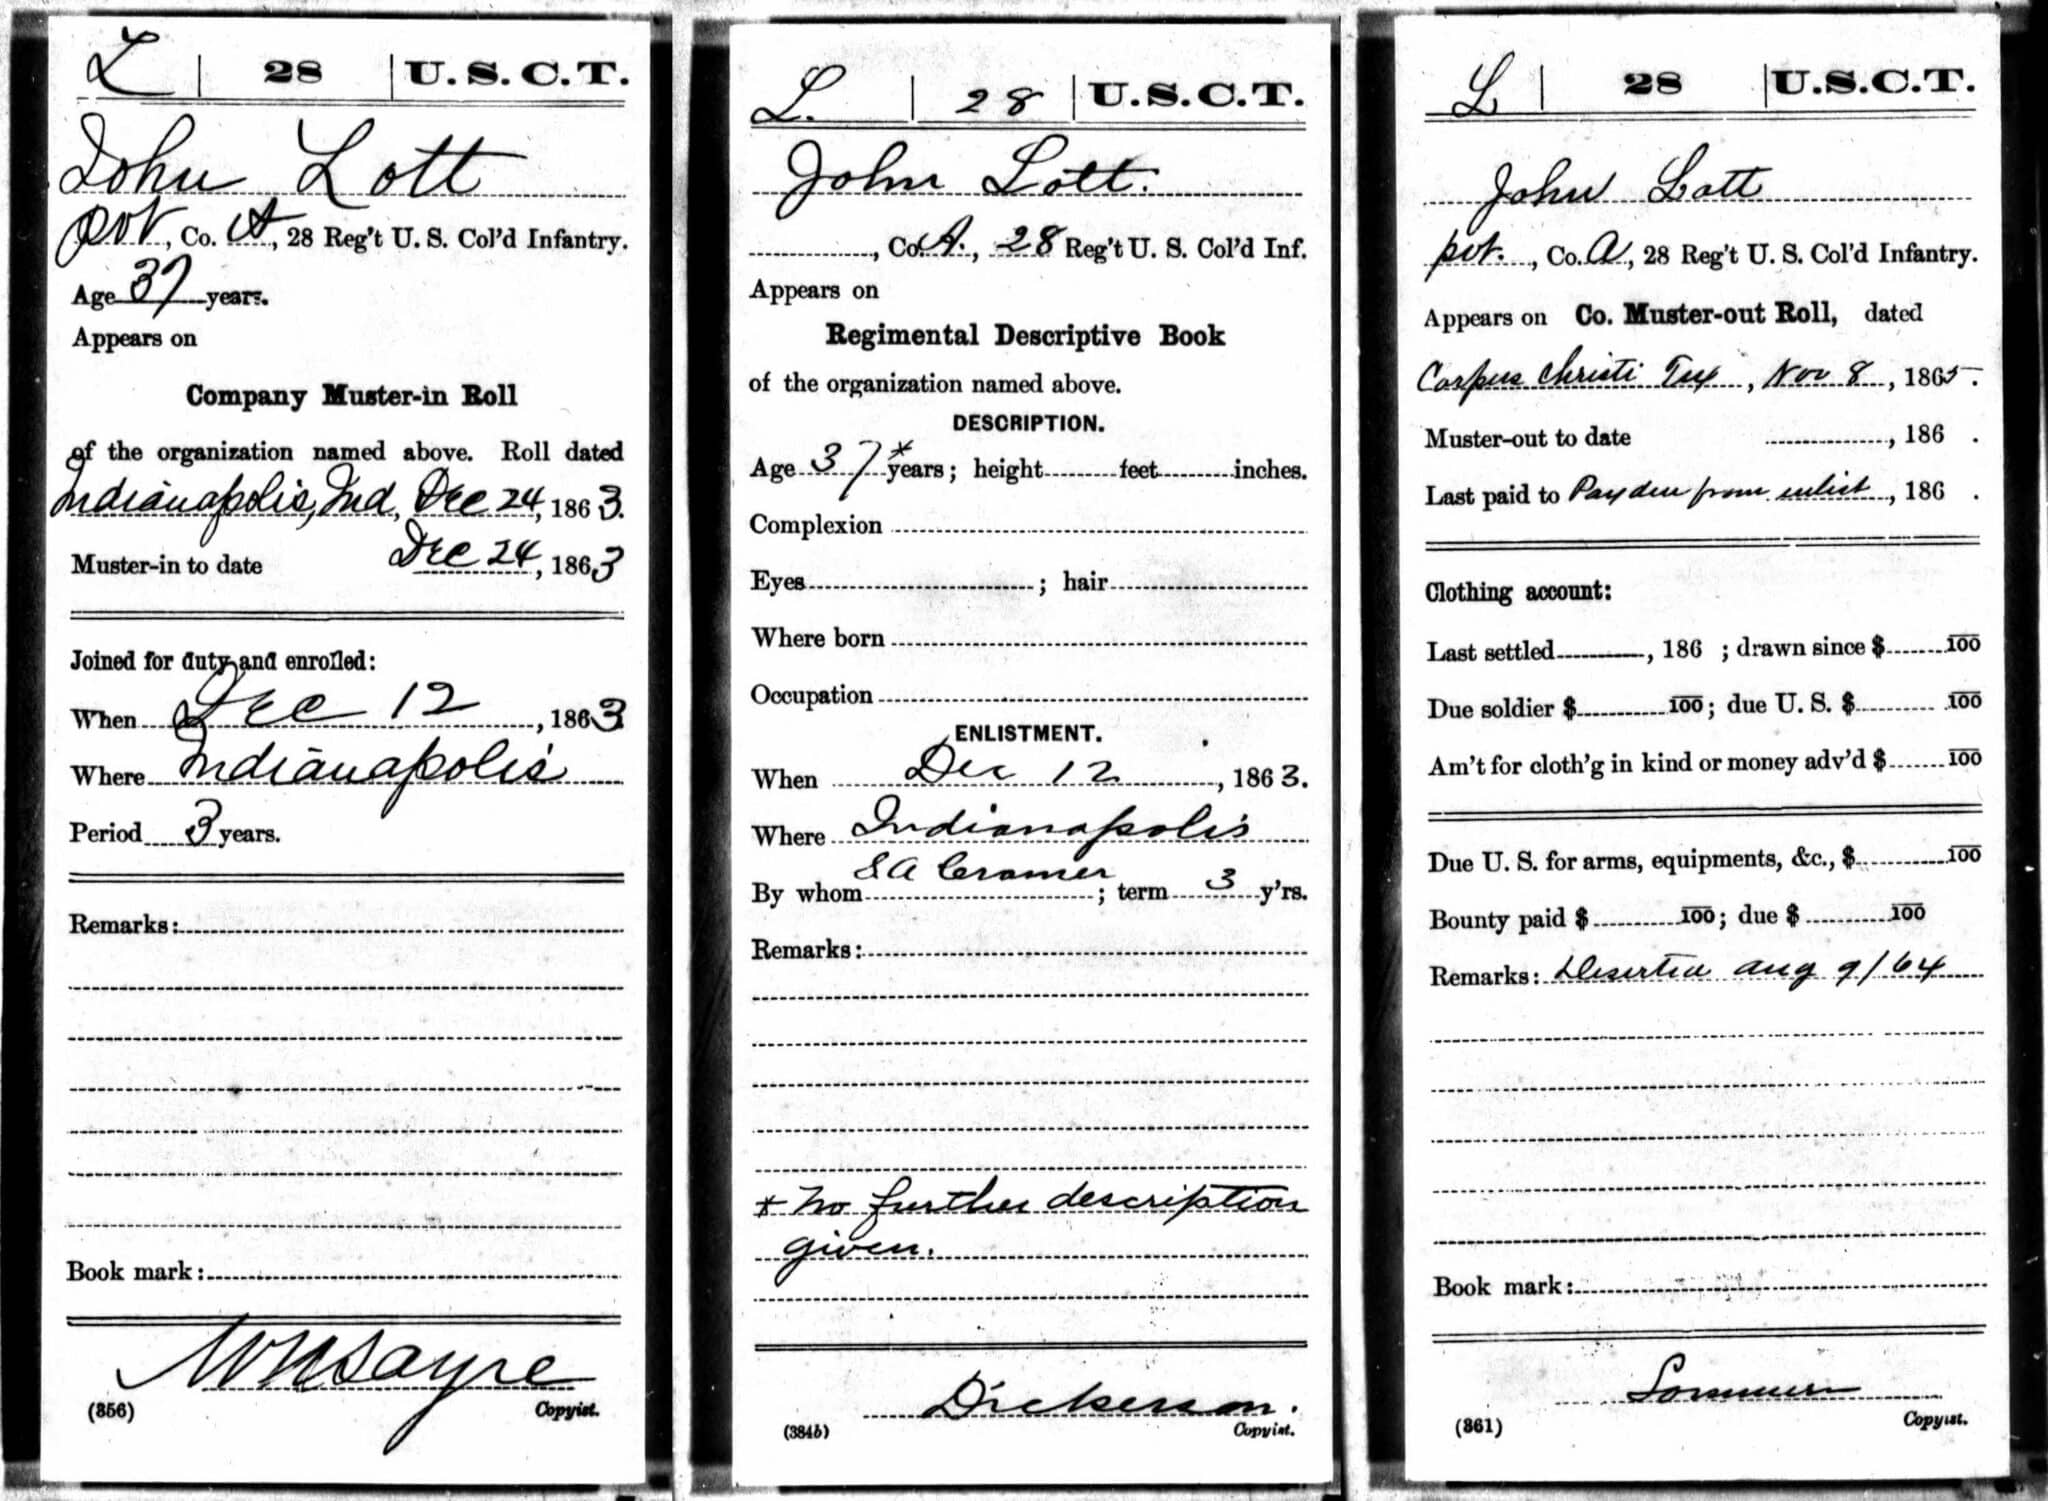 L | 28 | U.S.C.T.
John Lott
pvt, Co. A, 28 Reg't U. S. Col'd Infantry.
Age 37 years.
Appears on
Company Muster-in Roll
of the organization named above. Roll dated
Indianapolis, Ind, Dec 24, 1863.
Muster-in to date Dec 24, 1863
Joined for duty and enrolled:
When Dec 12, 1863
Where Indianapolis
Period 3 years.
Remarks:
Book mark:
WMSayre
(356) Copyist.
L. | 28 | U.S.C.T.
John Lott.
, Co. A., 28 Reg't U. S. Col'd Inf.
Appears on
Regimental Descriptive Book
of the organization named above.
DESCRIPTION.
Age 37* years; height feet inches.
Complexion
Eyes ; hair
Where born
Occupation
ENLISTMENT.
When Dec 12, 1863.
Where Indianapolis
By whom S A Cramer; term 3 y'rs.
Remarks:
* No further description
given.
Dickerson.
(384b) Copyist.
L | 28 | U.S.C.T.
John Lott
pvt., Co. A, 28 Reg't U. S. Col'd Infantry.
Appears on Co. Muster-out Roll, dated
Corpus Christi Tex, Nov 8, 1865.
Muster-out to date , 186 .
Last paid to Pay due from enlist, 186 .
Clothing account:
Last settled , 186 ; drawn since $ 100
Due soldier $ 100; due U. S. $ 100
Am't for cloth'g in kind or money adv'd $ 100
Due U. S. for arms, equipments, &c., $ 100
Bounty paid $ 100; due $ 100
Remarks: Deserted Aug 9/64
Book mark:
(861) Copyist.